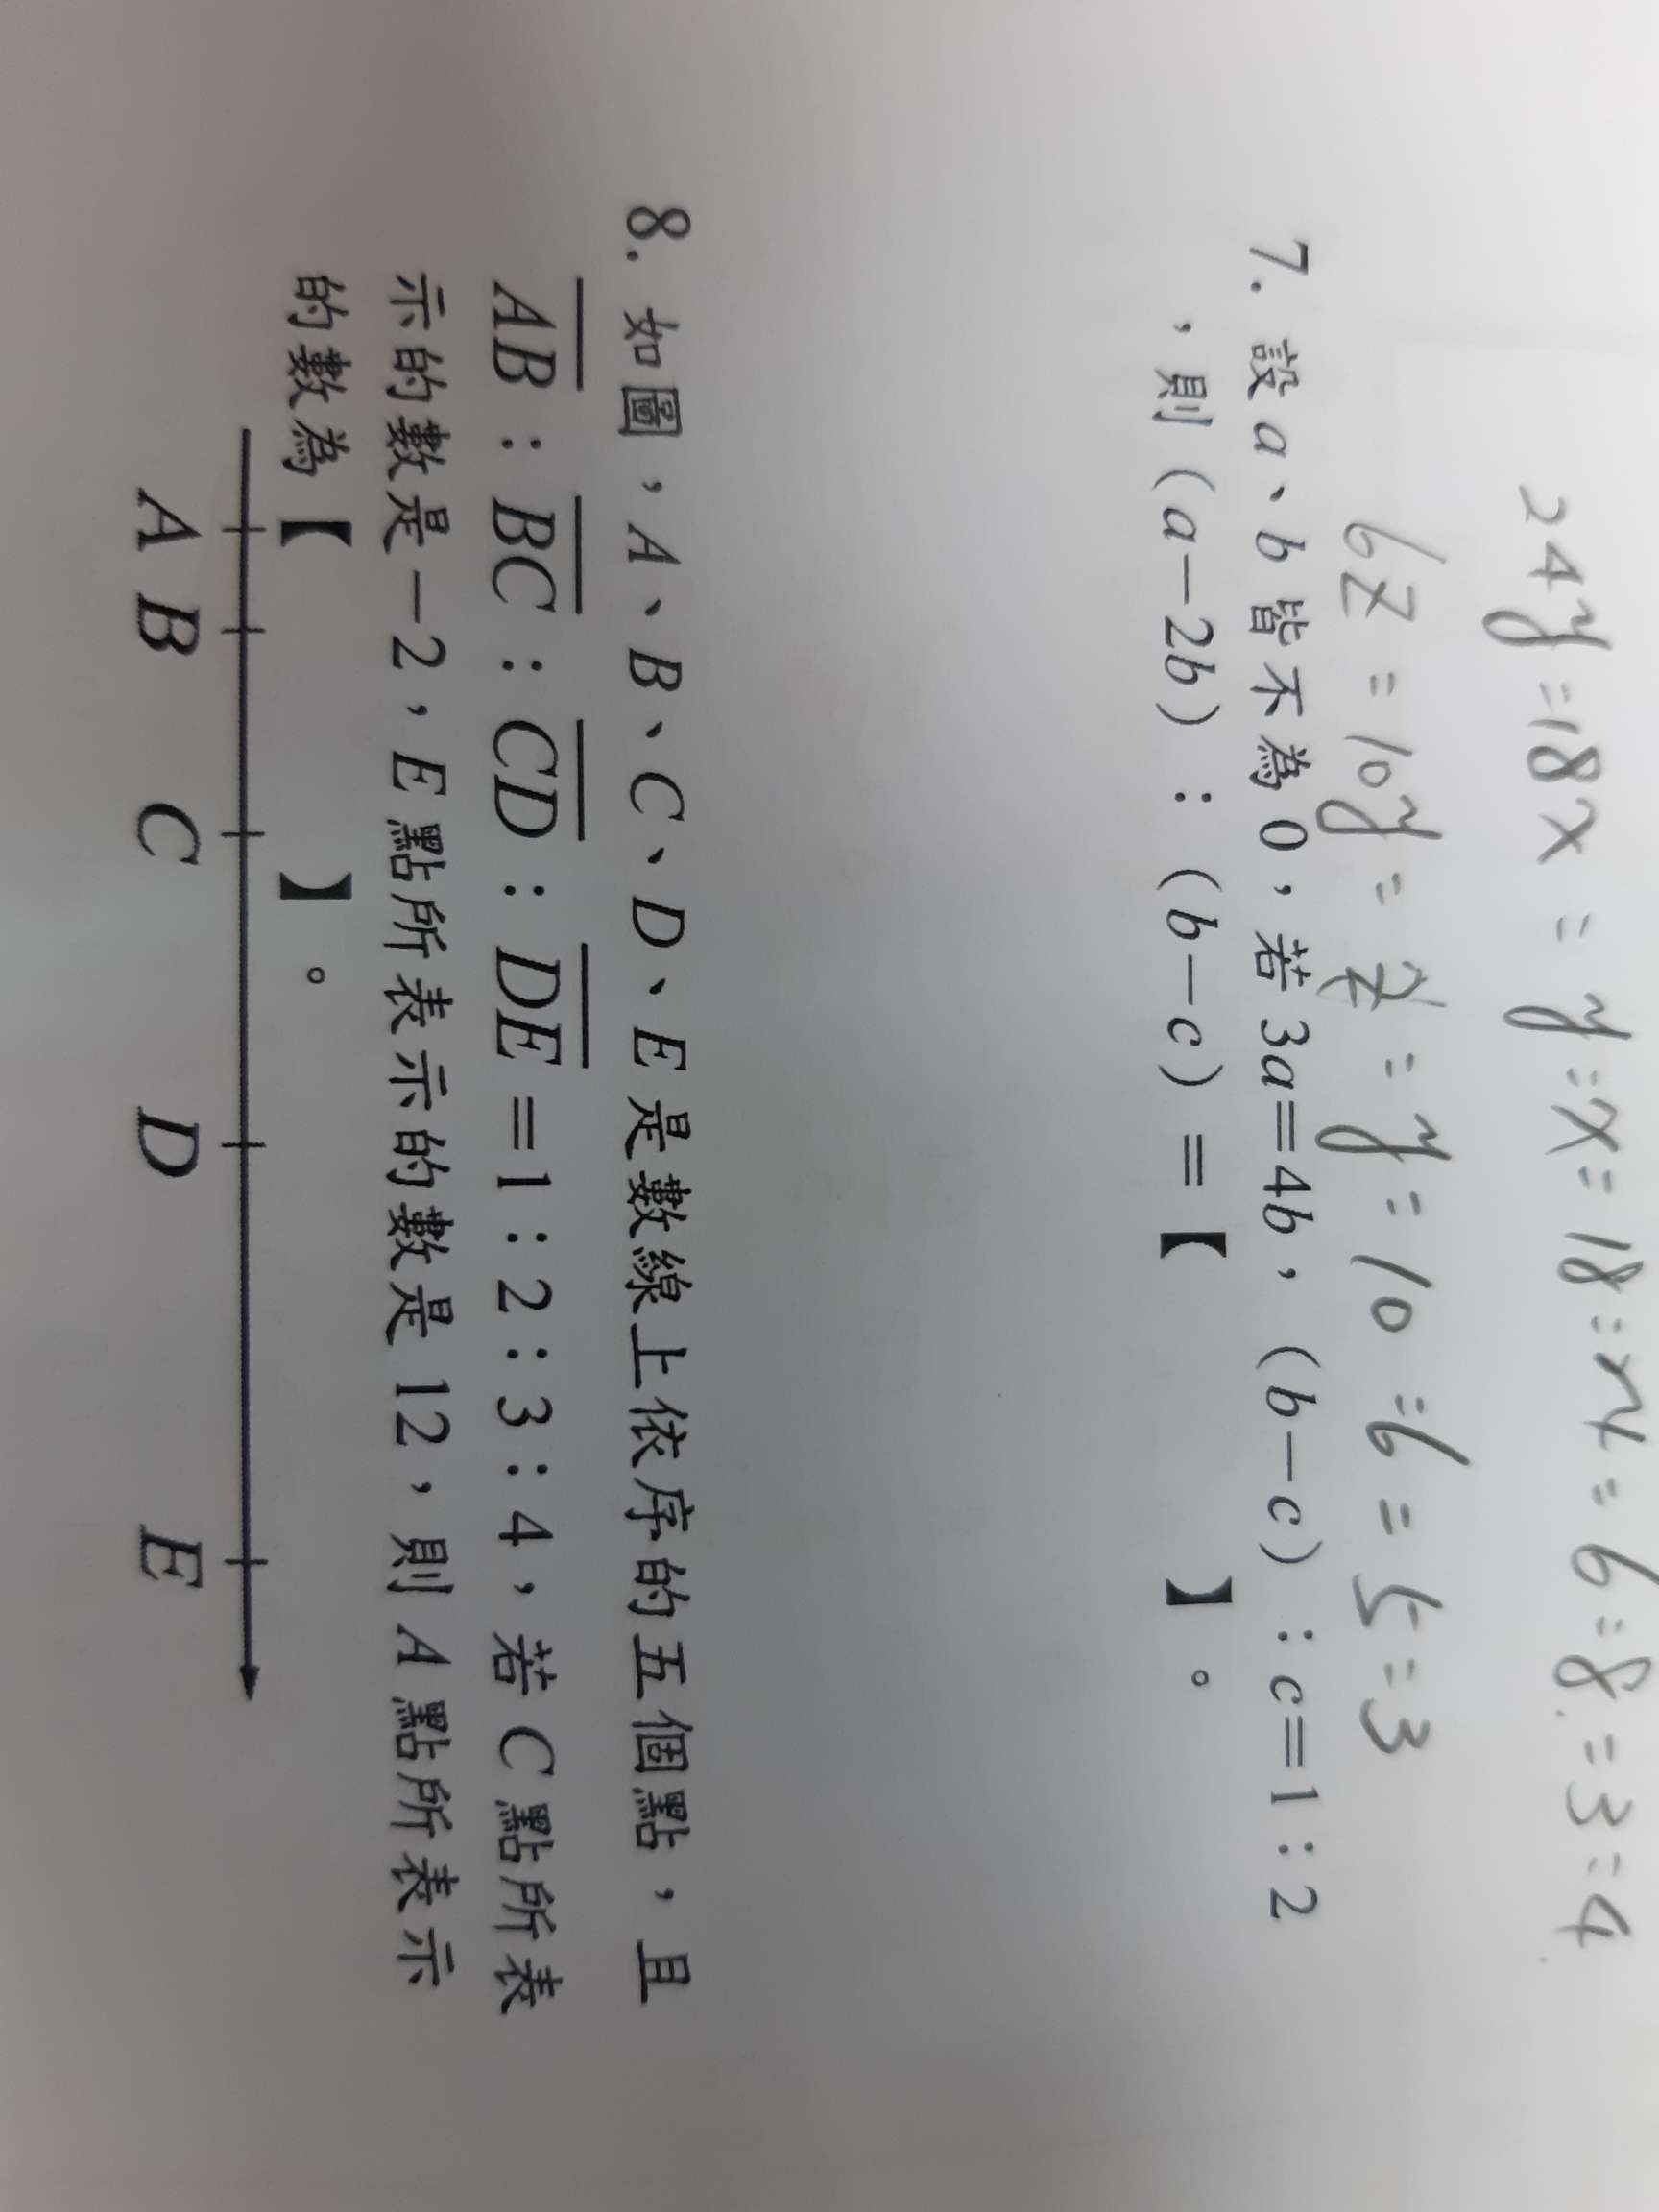 24y=18x = y:x=18:24=6:8=3:4
6z=10y=z=y=10:6=5=3
7. 設 a、b 皆不為 0，若 3a=4b，(b-c)：c=1：2
，則 (a-2b)：(b-c)=【 】。
8. 如圖，A、B、C、D、E 是數線上依序的五個點，且
AB：BC：CD：DE=1：2：3：4，若 C 點所表
示的數是-2，E 點所表示的數是 12，則 A 點所表示
的數為【 】。
A B C D E